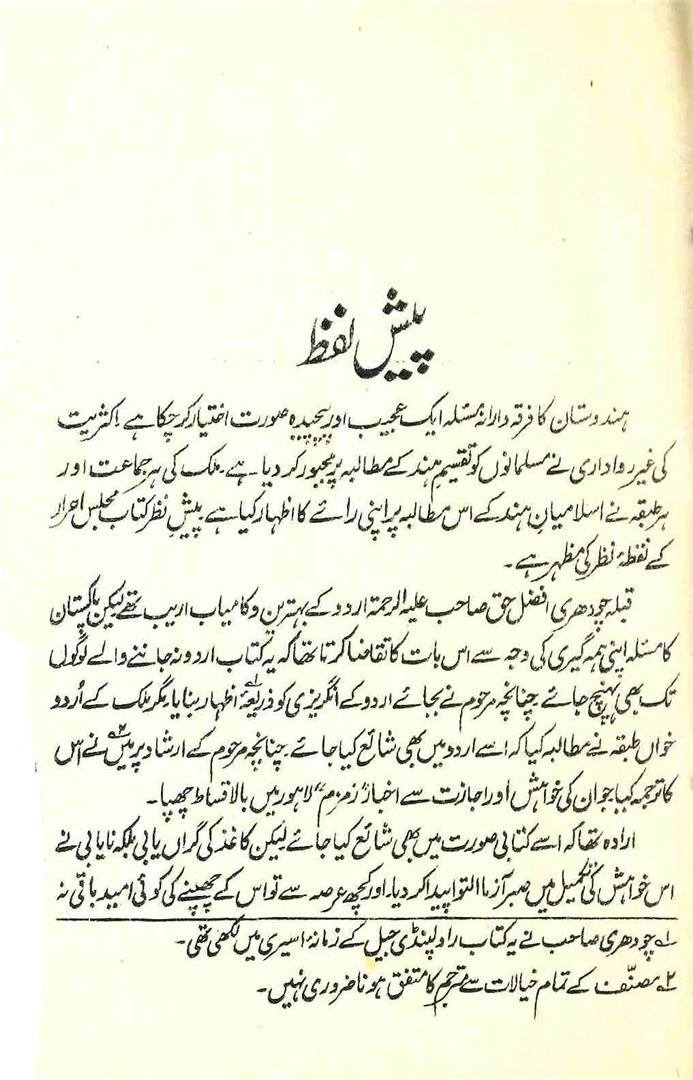 پیش لفظ
ہندوستان کا فرقہ دارانہ مسئلہ ایک عجیب اور پیچیدہ صورت اختیار کر چکا ہے۔ اکثریت
کی غیر رواداری نے مسلمانوں کو تقسیمِ ہند کے مطالبہ پر مجبور کر دیا ہے۔ ملک کی ہر جماعت اور
ہر طبقہ نے اسلامیانِ ہند کے اس مطالبہ پر اپنی رائے کا اظہار کیا ہے۔ پیشِ نظر کتاب مجلس احرار
کے نقطۂ نظر کی مظہر ہے۔
قبلہ چودھری افضل حق صاحب علیہ الرحمۃ اردو کے بہترین و کامیاب ادیب تھے لیکن پاکستان
کا مسئلہ اپنی ہمہ گیری کی وجہ سے اس بات کا تقاضا کرتا تھا کہ یہ کتاب اردو نہ جاننے والے لوگوں
تک بھی پہنچ جائے۔ چنانچہ مرحوم نے بجائے اردو کے انگریزی کو ذریعۂ اظہار بنایا۱؎ مگر ملک کے اُردو
خواں طبقہ نے مطالبہ کیا کہ اسے اردو میں بھی شائع کیا جائے۔ چنانچہ مرحوم کے ارشاد پر میں۲؎ نے اس
کا ترجمہ کیا جو ان کی خواہش اور اجازت سے اخبار "زمزم" لاہور میں بالاقساط چھپا۔
ارادہ تھا کہ اسے کتابی صورت میں بھی شائع کیا جائے لیکن کاغذ کی گراں یابی بلکہ نایابی نے
اس خواہش کی تکمیل میں صبر آزما التوا پیدا کر دیا۔ اور کچھ عرصہ سے تو اس کے چھپنے کی کوئی امید باقی نہ
۱؎ چودھری صاحب نے یہ کتاب راولپنڈی جیل کے زمانۂ اسیری میں لکھی تھی۔
۲؎ مصنّف کے تمام خیالات سے مترجم کا متفق ہونا ضروری نہیں۔